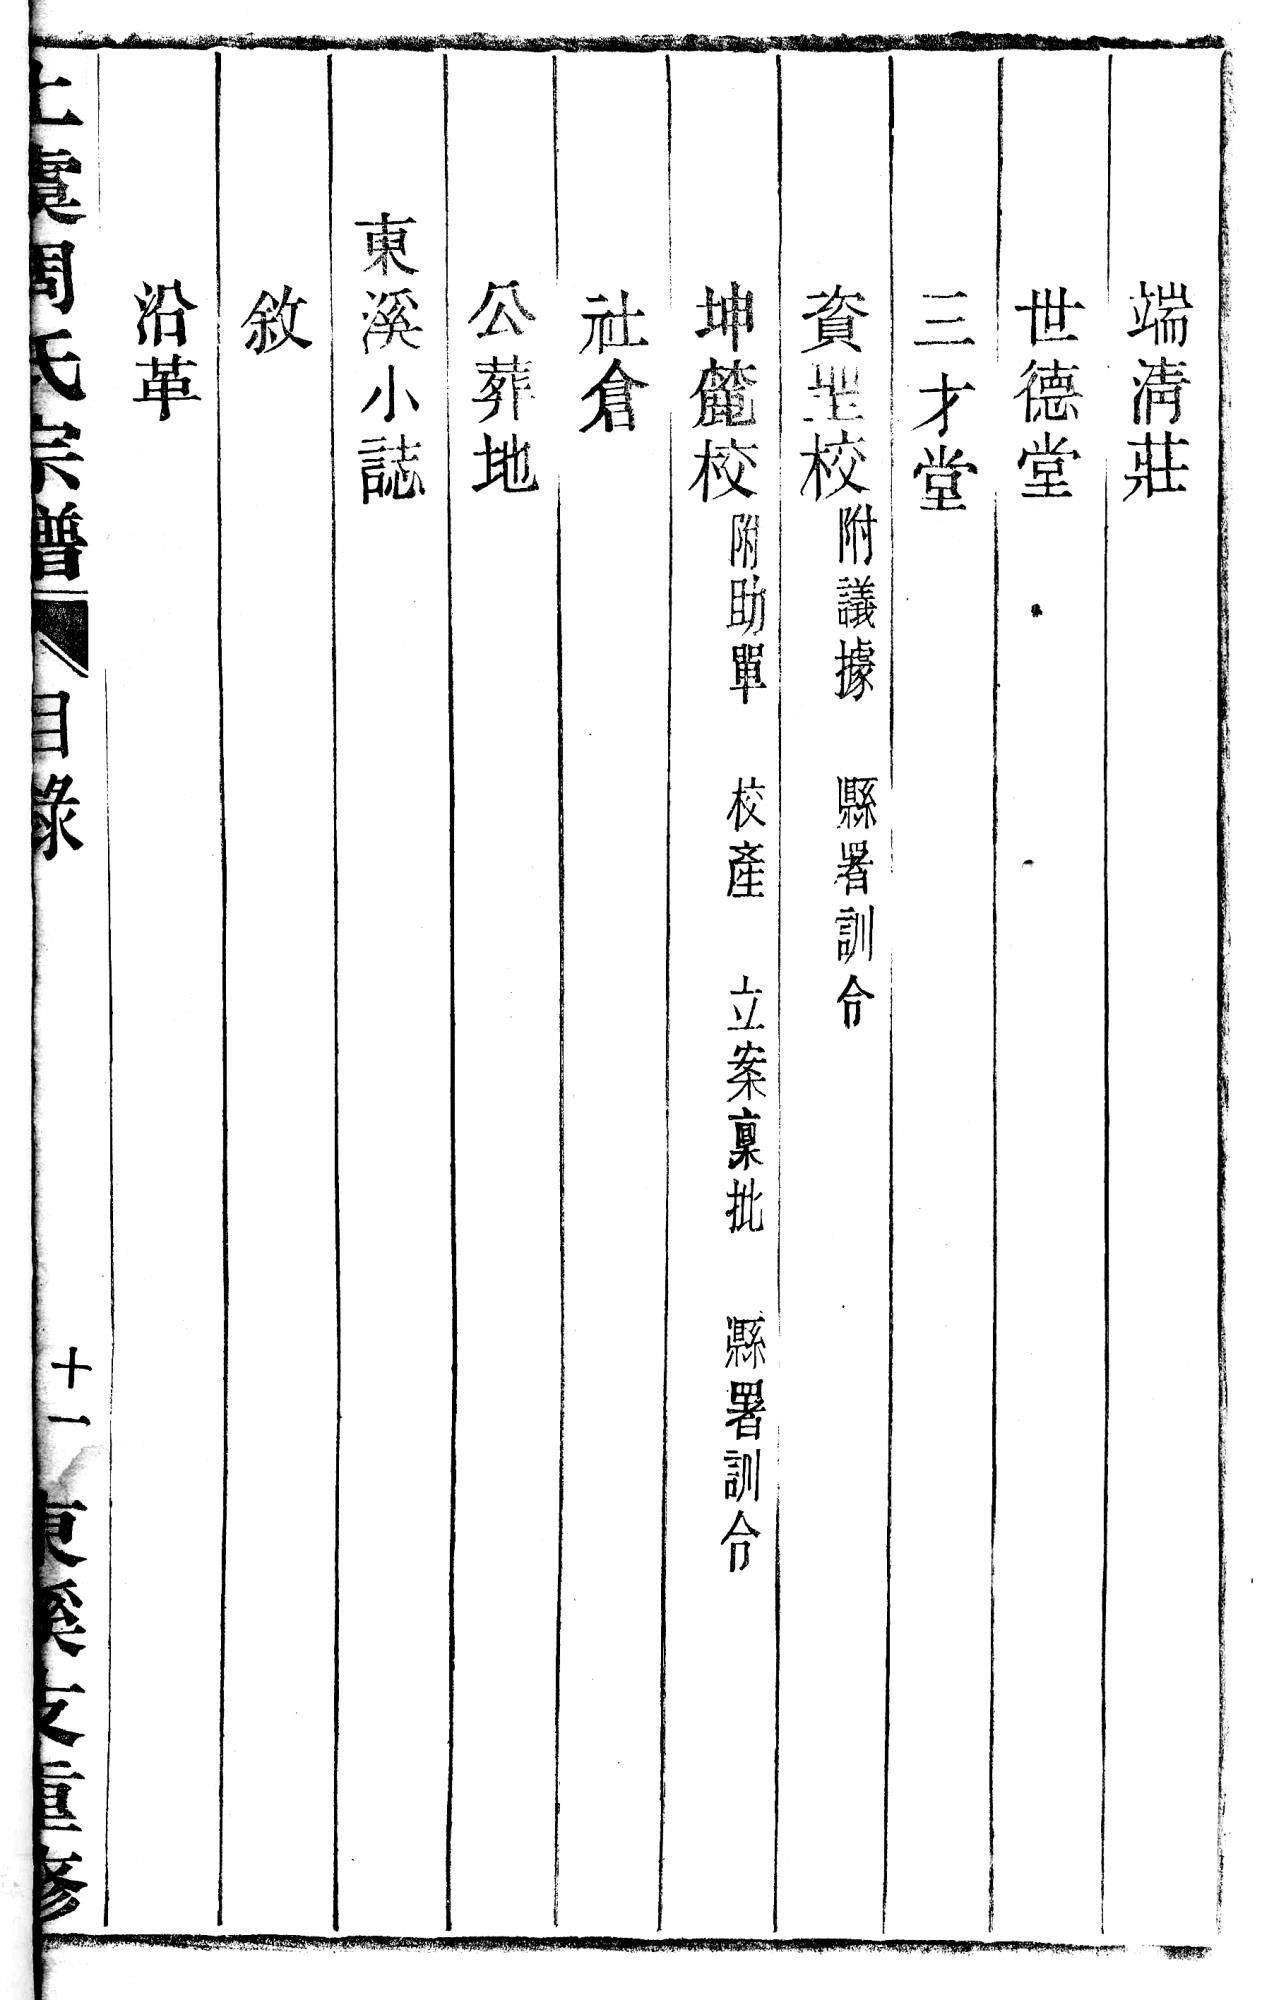 端淸莊
世德堂
三才堂
資聖校附議據　縣署訓令
坤麓校附助單　校產　立案稟批　縣署訓令
社倉
公葬地
東溪小誌
敘
沿革
上虞周氏宗譜　目錄　十一　東溪支重修